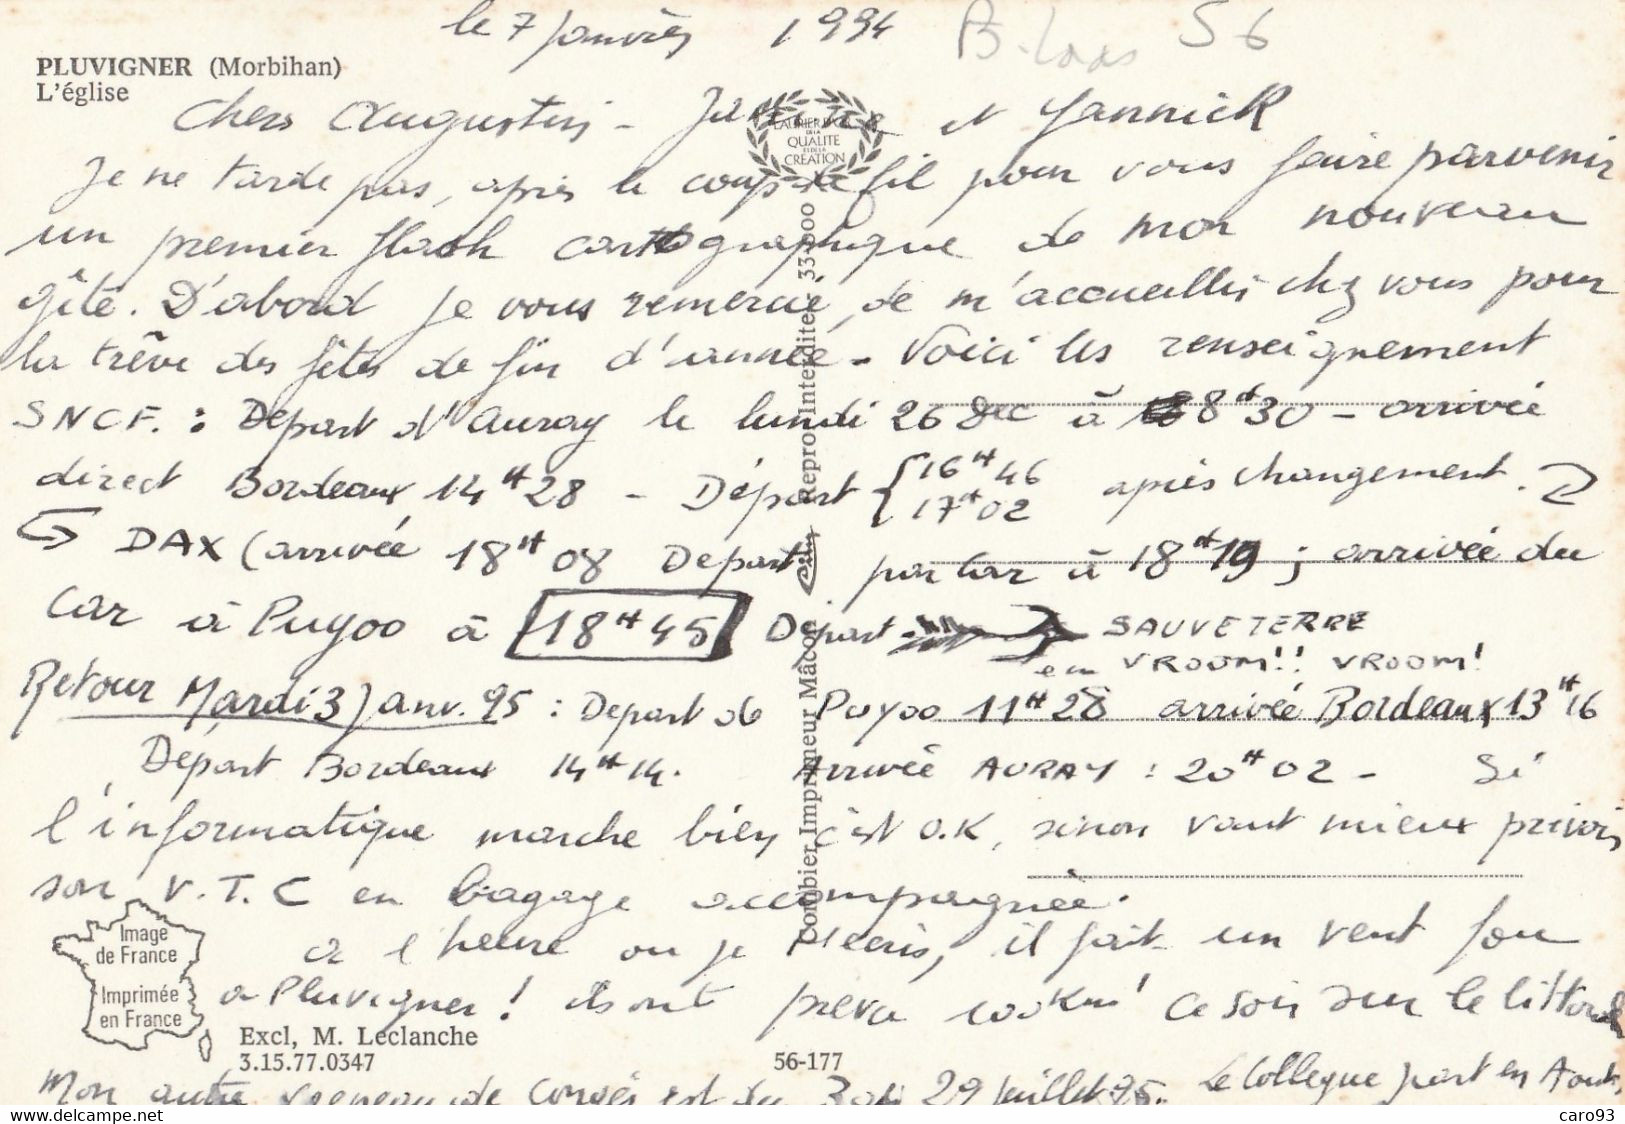 le 7 janvier 1994
56
PLUVIGNER (Morbihan)
L'église
Chers Augustin - et Yannick
LAURIER D'OR
DE LA
QUALITE
ET DE LA
CREATION
Je ne tarde pas, après le coup de fil pour vous faire parvenir
un premier flash cartographique de mon nouveau
gîte. D'abord je vous remercie, de m'accueillir chez vous pour
la trêve des fêtes de fin d'année - Voici les renseignement
SNCF. : Départ d'Auray le lundi 26 Dec à 8H30 - arrivée
direct Bordeaux 14H28 - Départ { 16H46
17H02 après changement.
DAX (arrivée 18H08 Départ par Car à 18H19 ; arrivée du
Car à Puyoo à 18H45 Départ SAUVETERRE
en VROOM!! VROOM!
Retour Mardi 3 Janv. 95 : Départ de Puyoo 11H28 arrivée Bordeaux 13H16
Départ Bordeaux 14H14. Arrivée AURAY : 20H02 - Si
l'informatique marche bien c'est O.K, sinon vaut mieux prévoir
son V.T.C en bagage accompagnée.
à l'heure où je écris, il fait un vent fou
à Pluvigner ! ils ont prévu 100Km ce soir sur le littoral
Image
de France
Imprimée
en France
Excl, M. Leclanche
3.15.77.0347
56-177
Combier Imprimeur Mâcon
Cim
Repro. Interdite
Mon autre créneau de congés est du 3 au 29 Juillet 95. Le Collegue part en Aout,
www.delcampe.net
caro93